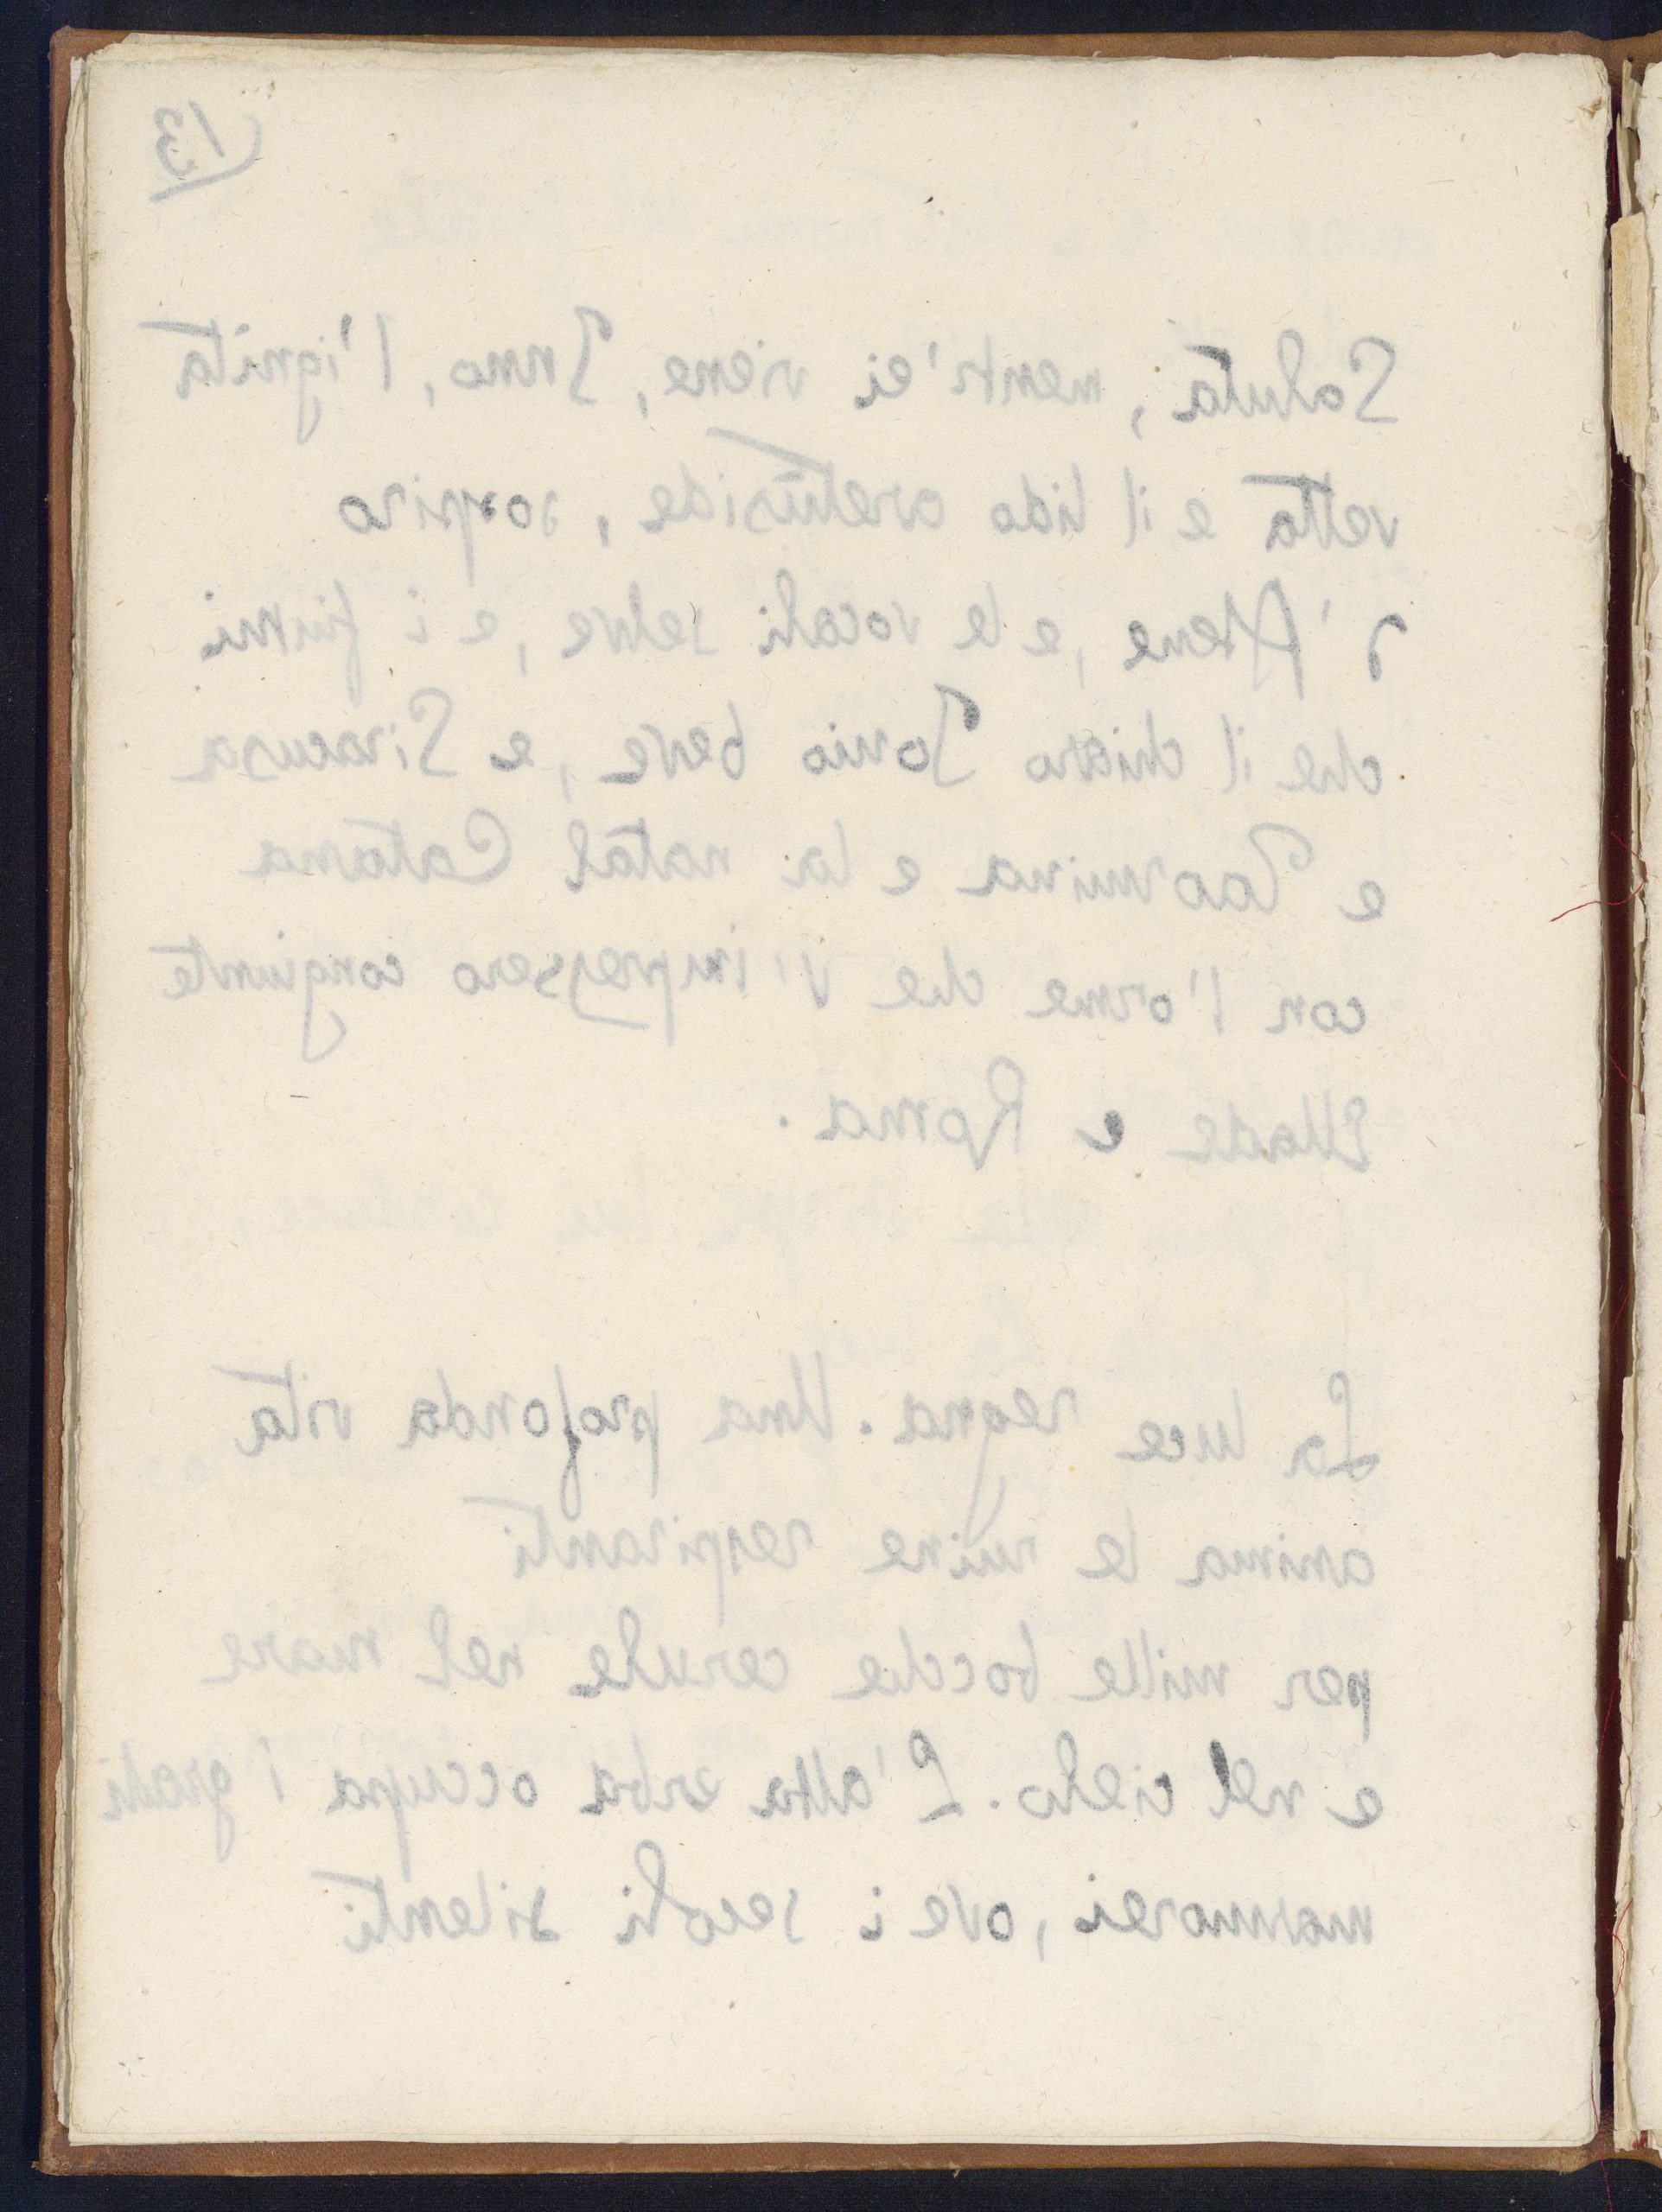 13
Saluta, mentr'ei viene, Inno, l'ignita
vetta e il lido aretùside, sospiro
d'Atene, e le vocali selve, e i fiumi
che il chiaro Jonio beve, e Siracusa
e Taormina e la natal Catana
con l'orme che v'impressero congiunte
Ellade e Roma.
La luce regna. Una profonda vita
anima le ruine respiranti
per mille bocche cerule nel mare
e nel cielo. L'alta erba occupa i gradi
marmorei, ove i secoli silenti